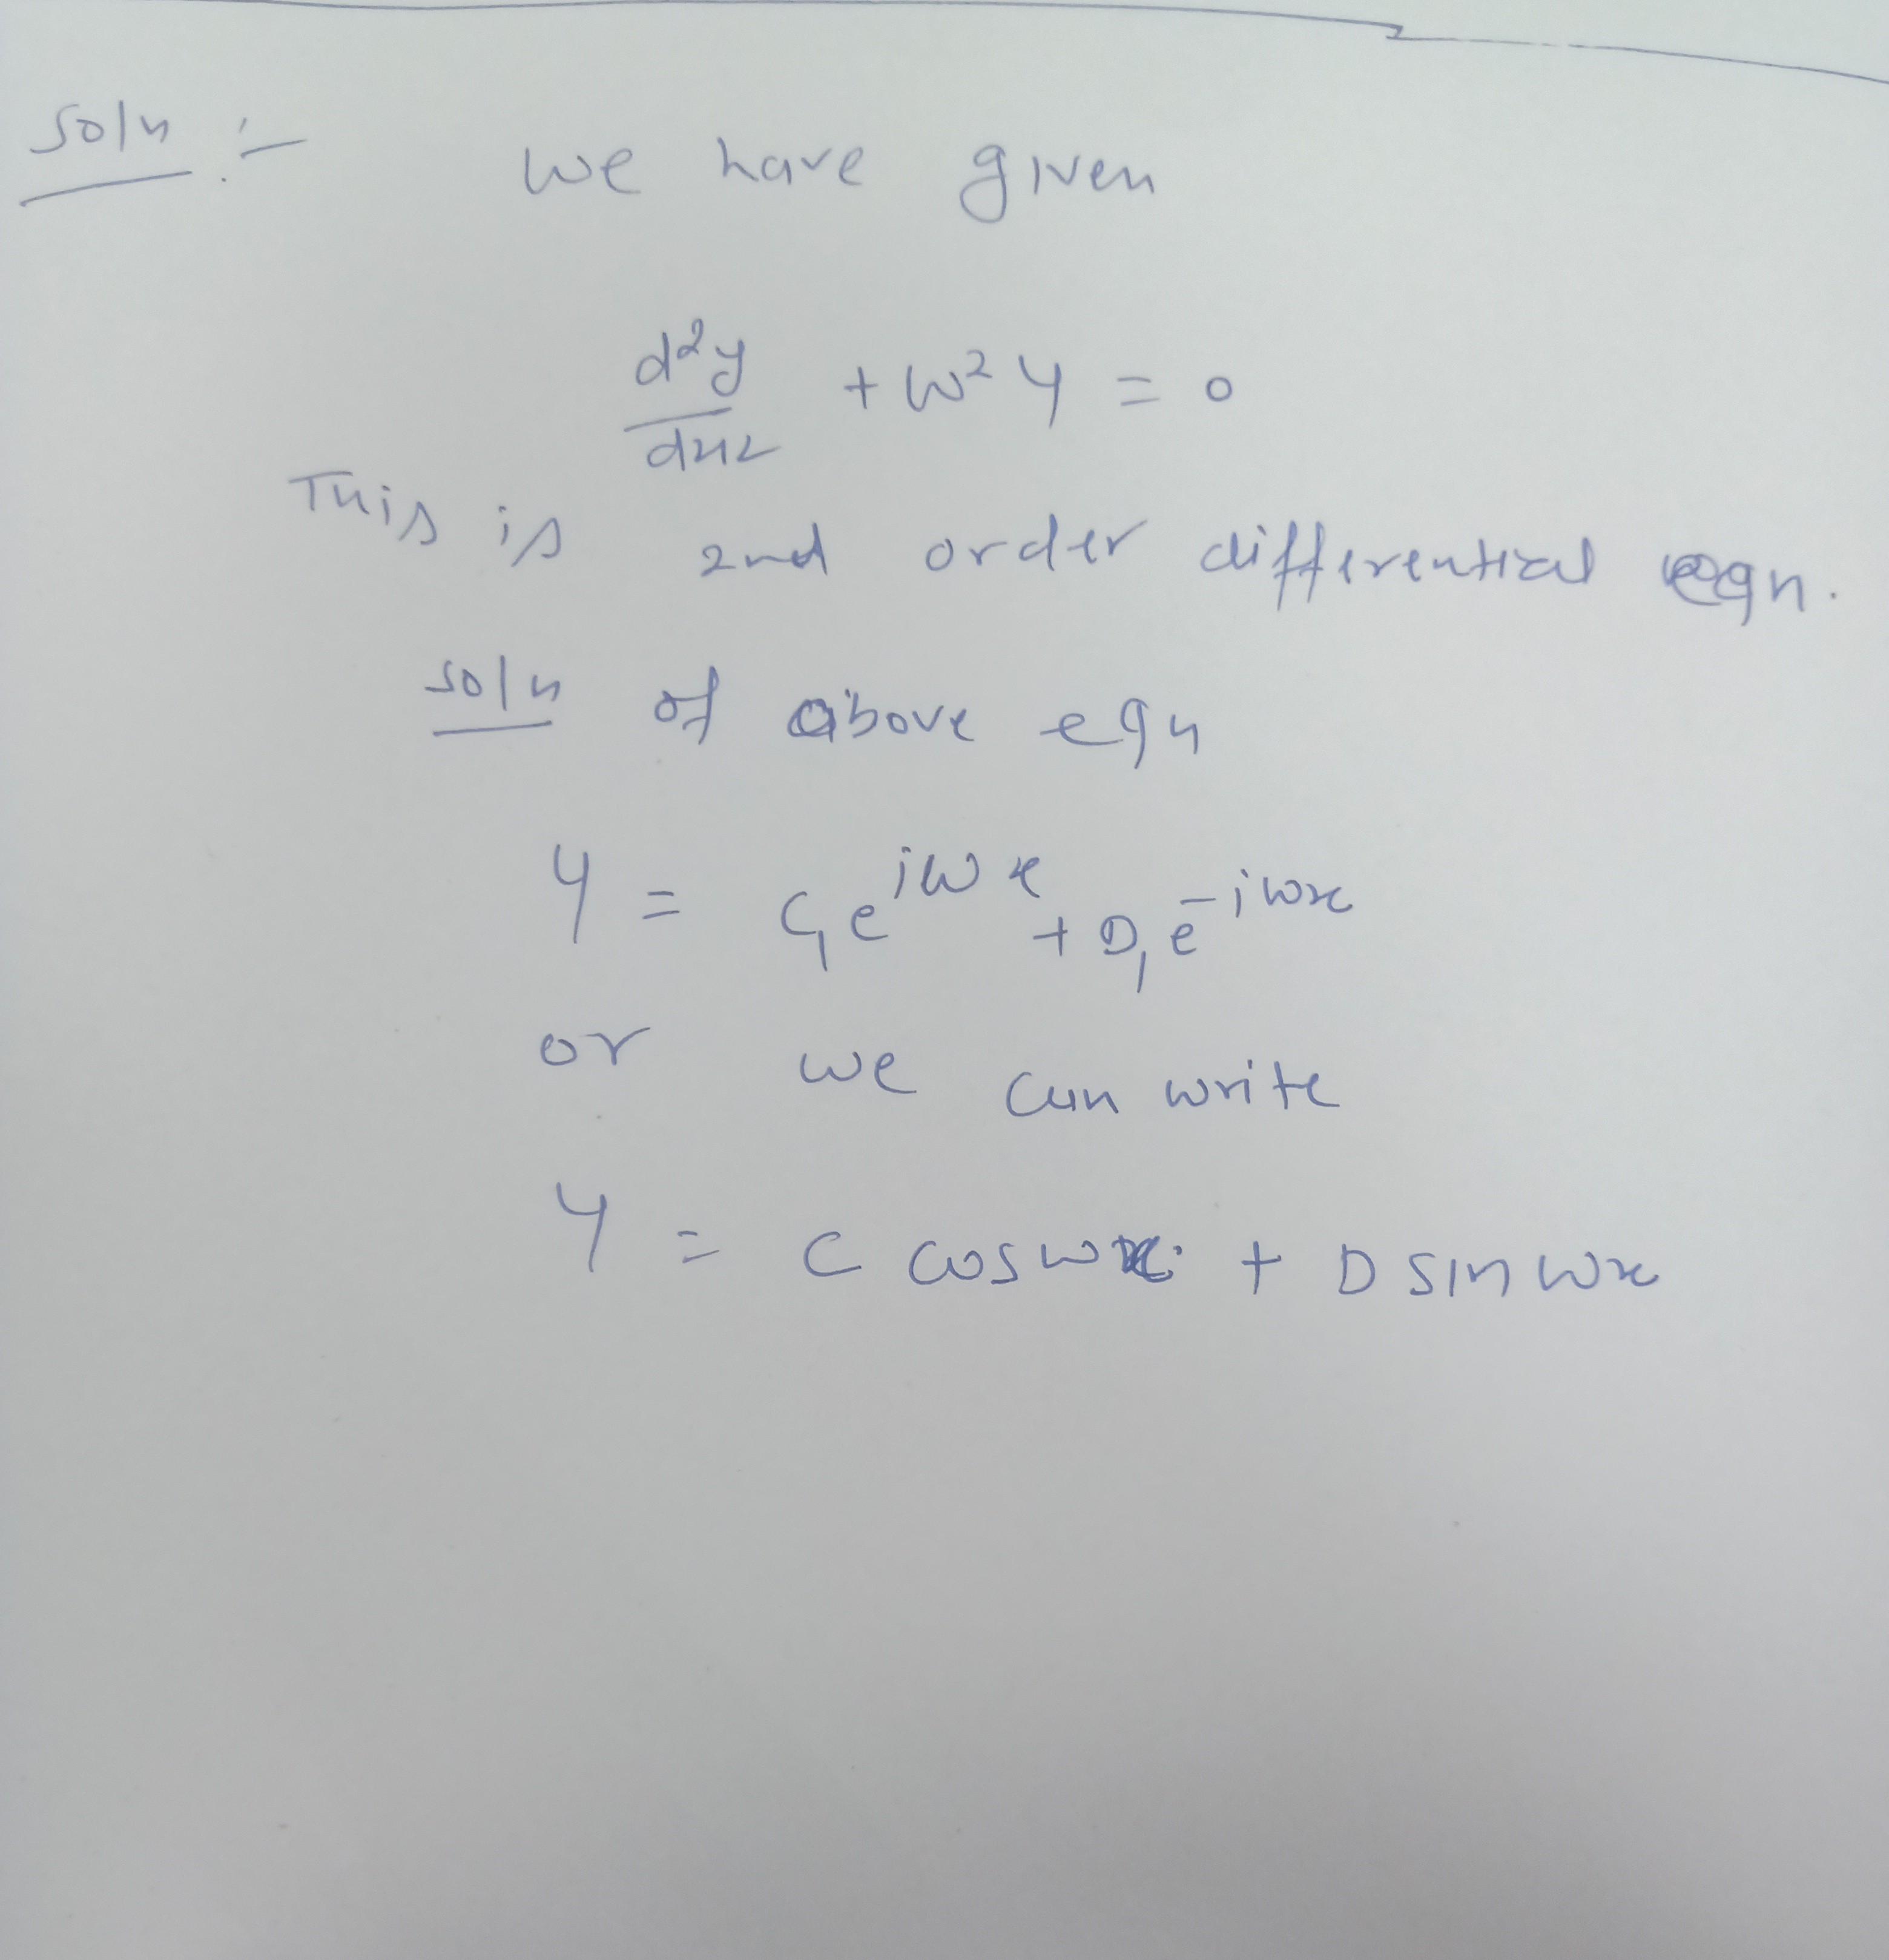 Soln :-
We have given
d²y/dx² + ω² y = 0
This is 2nd order differential eqn.
soln of above eqn
y = C₁e^{iωx} + D₁e^{-iωx}
or we can write
y = C cosωx + D sinωx